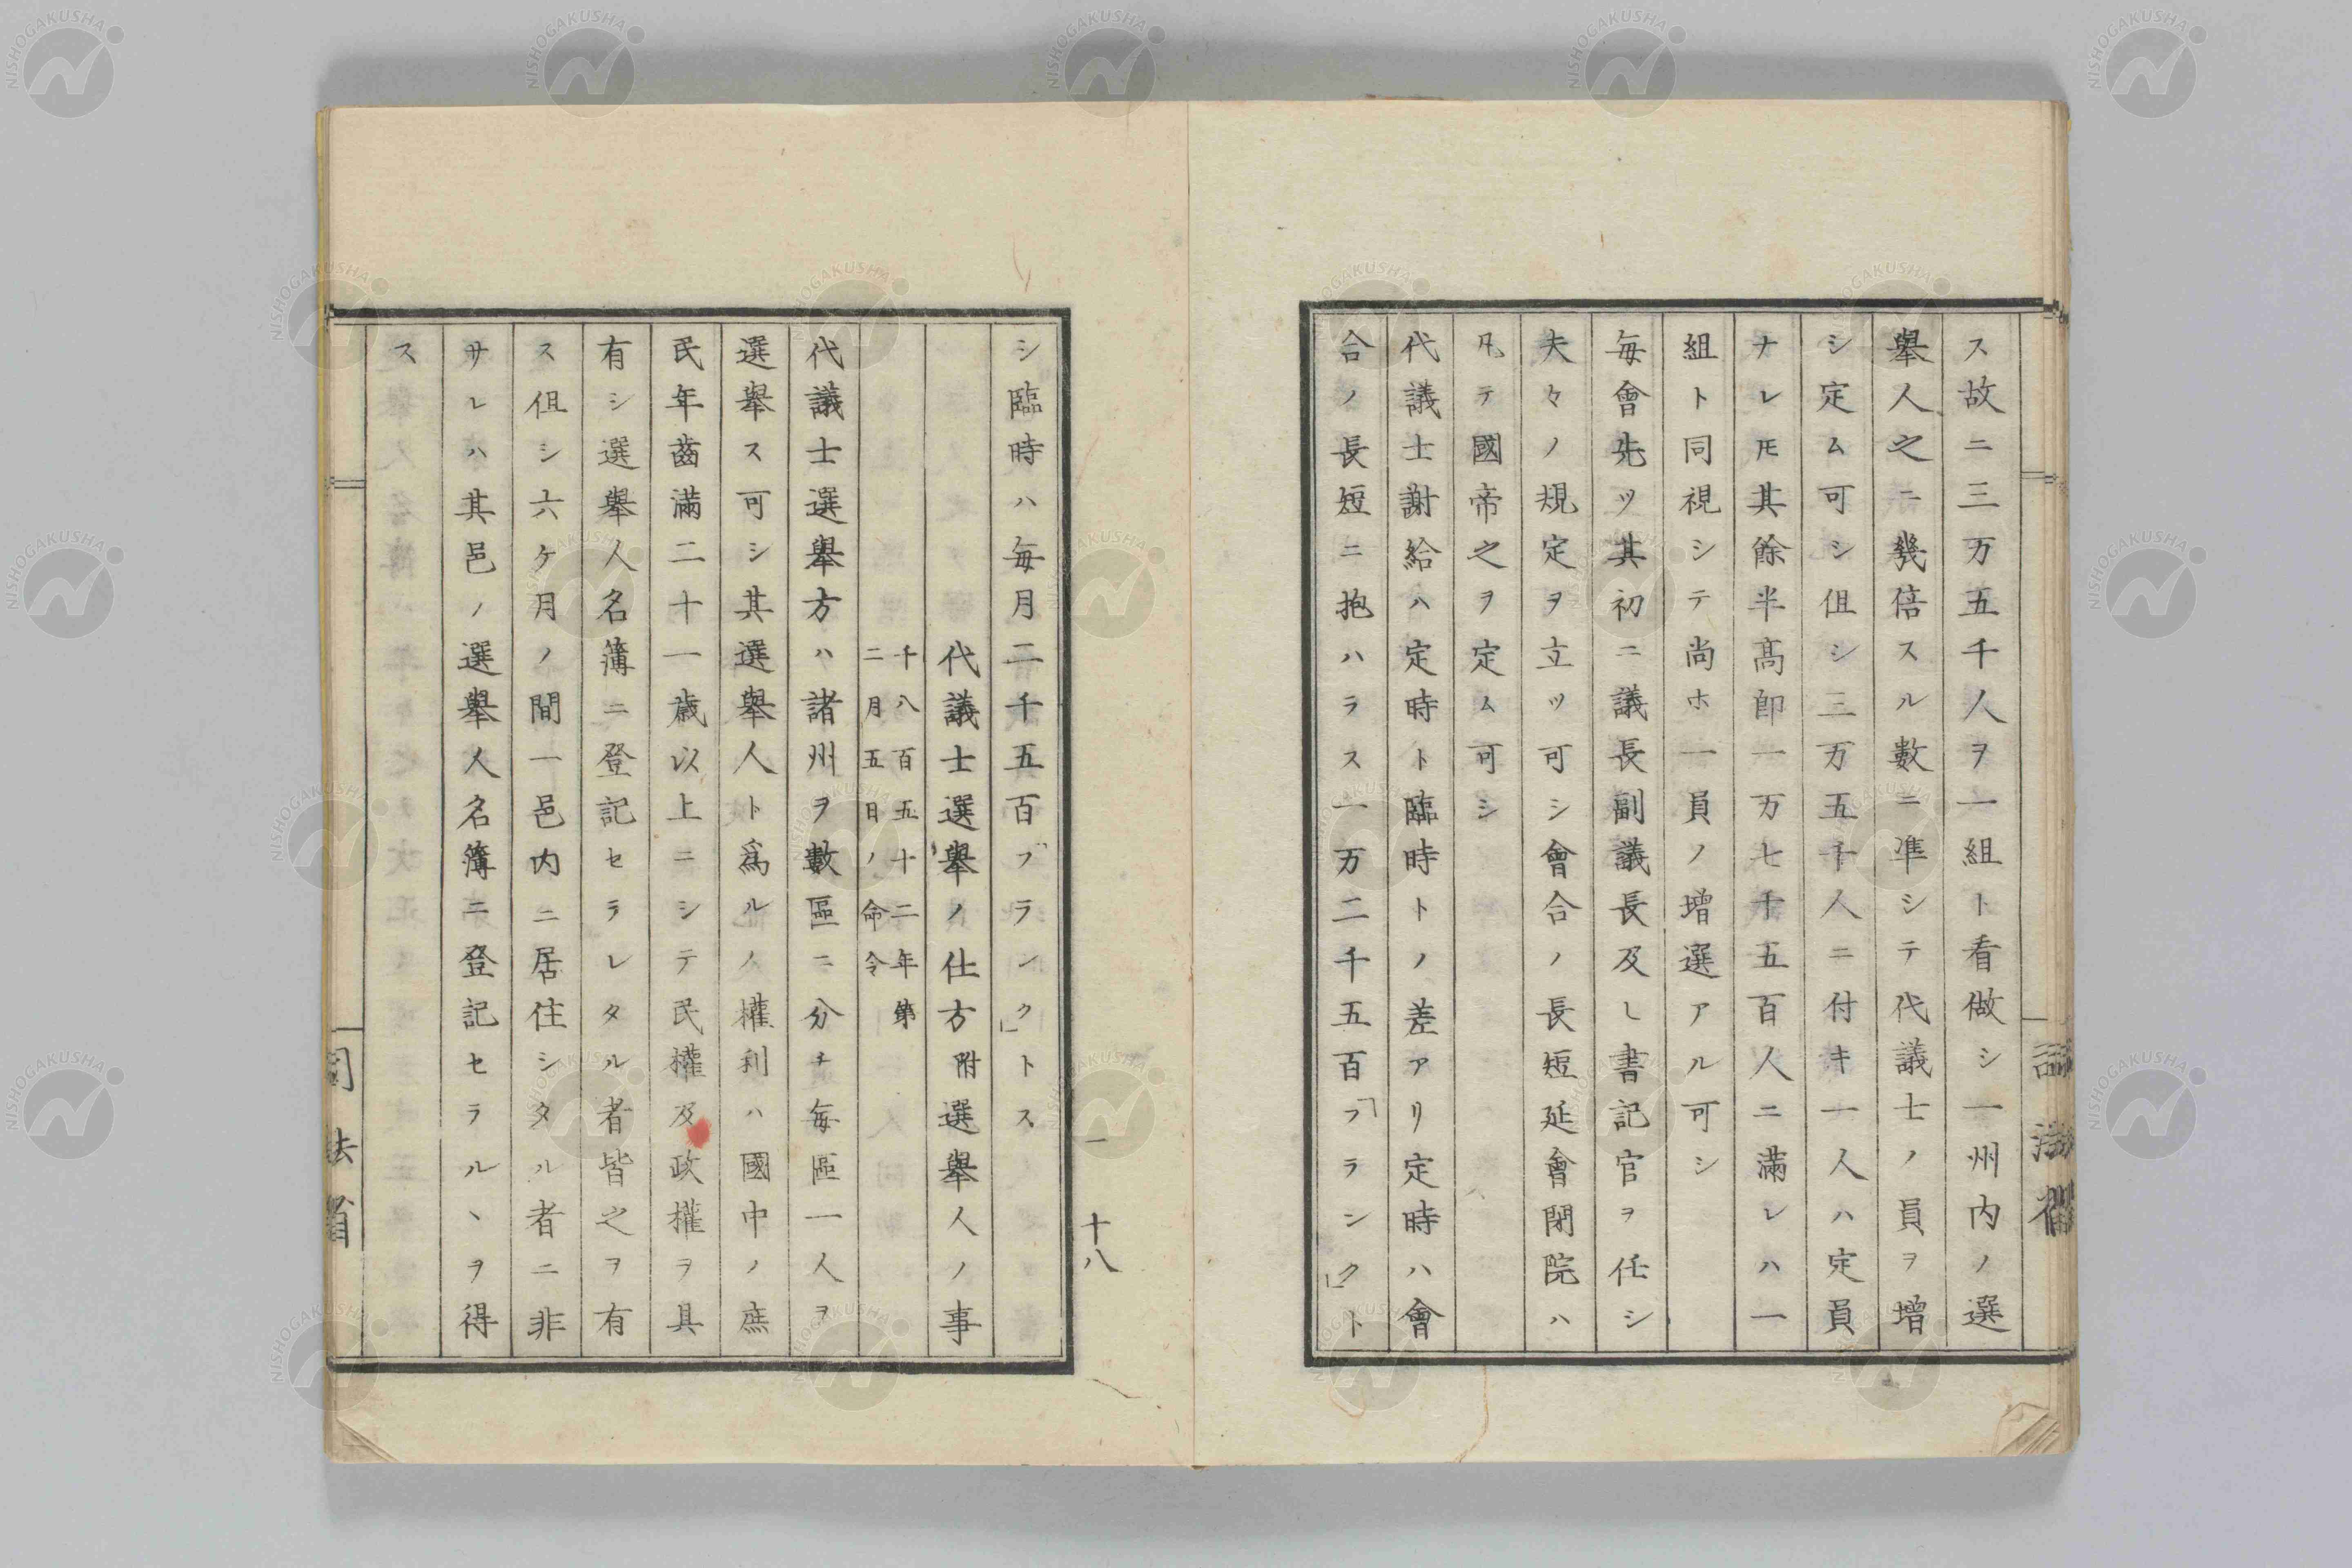 ス故ニ三万五千人ヲ一組ト看做シ一州内ノ選
擧人之ニ幾倍スル數ニ凖シテ代議士ノ員ヲ增
シ定ム可シ伹シ三万五千人ニ付キ一人ハ定員
ナレ𪜈其餘半髙卽一万七千五百人ニ滿レハ一
組ト同視シテ尚ホ一員ノ增選アル可シ
每會先ツ其初ニ議長副議長及ヒ書記官ヲ任シ
夫々ノ規定ヲ立ツ可シ會合ノ長短延會閉院ハ
凡テ國帝之ヲ定ム可シ
代議士謝給ハ定時ト臨時トノ差アリ定時ハ會
合ノ長短ニ抱ハラス一万二千五百「フランク」ト
シ臨時ハ每月二千五百「フランク」トス
代議士選擧ノ仕方附選擧人ノ事
千八百五十二年第
二月五日ノ命令
代議士選擧方ハ諸州ヲ數區ニ分チ每區一人ヲ
選擧ス可シ其選擧人ト爲ルノ權利ハ國中ノ庶
民年齒滿二十一歲以上ニシテ民權及政權ヲ具
有シ選擧人名簿ニ登記セラレタル者皆之ヲ有
ス伹シ六ケ月ノ間一邑内ニ居住シタル者ニ非
サレハ其邑ノ選擧人名簿ニ登記セラルヽヲ得
ス
十八
法省
NISHOGAKUSHA